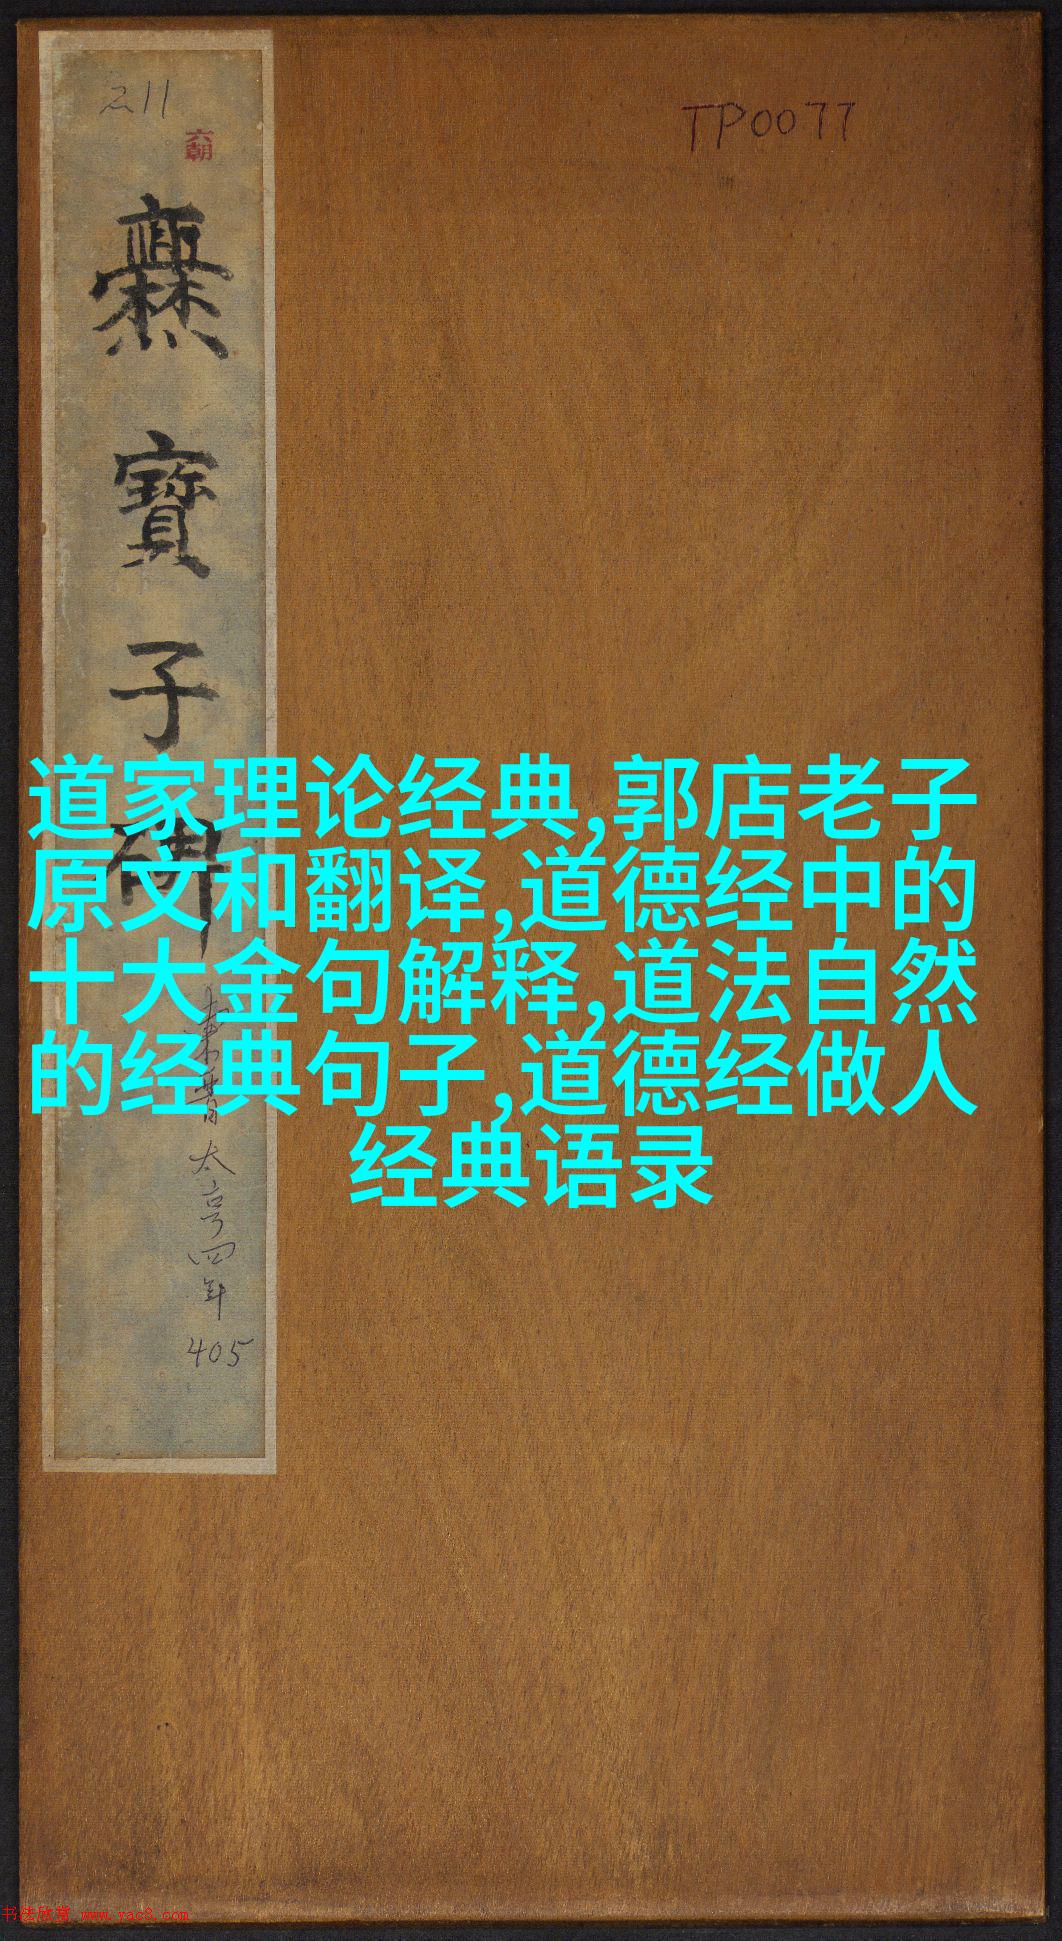 211
TP0077
六朝
爨寶子碑
道家理论经典,郭店老子
原文和翻译,道德经中的
十大金句解释,道法自然
的经典句子,道德经做人
经典语录
東晉太亨四年
405
书法欣赏 www.yac8.com